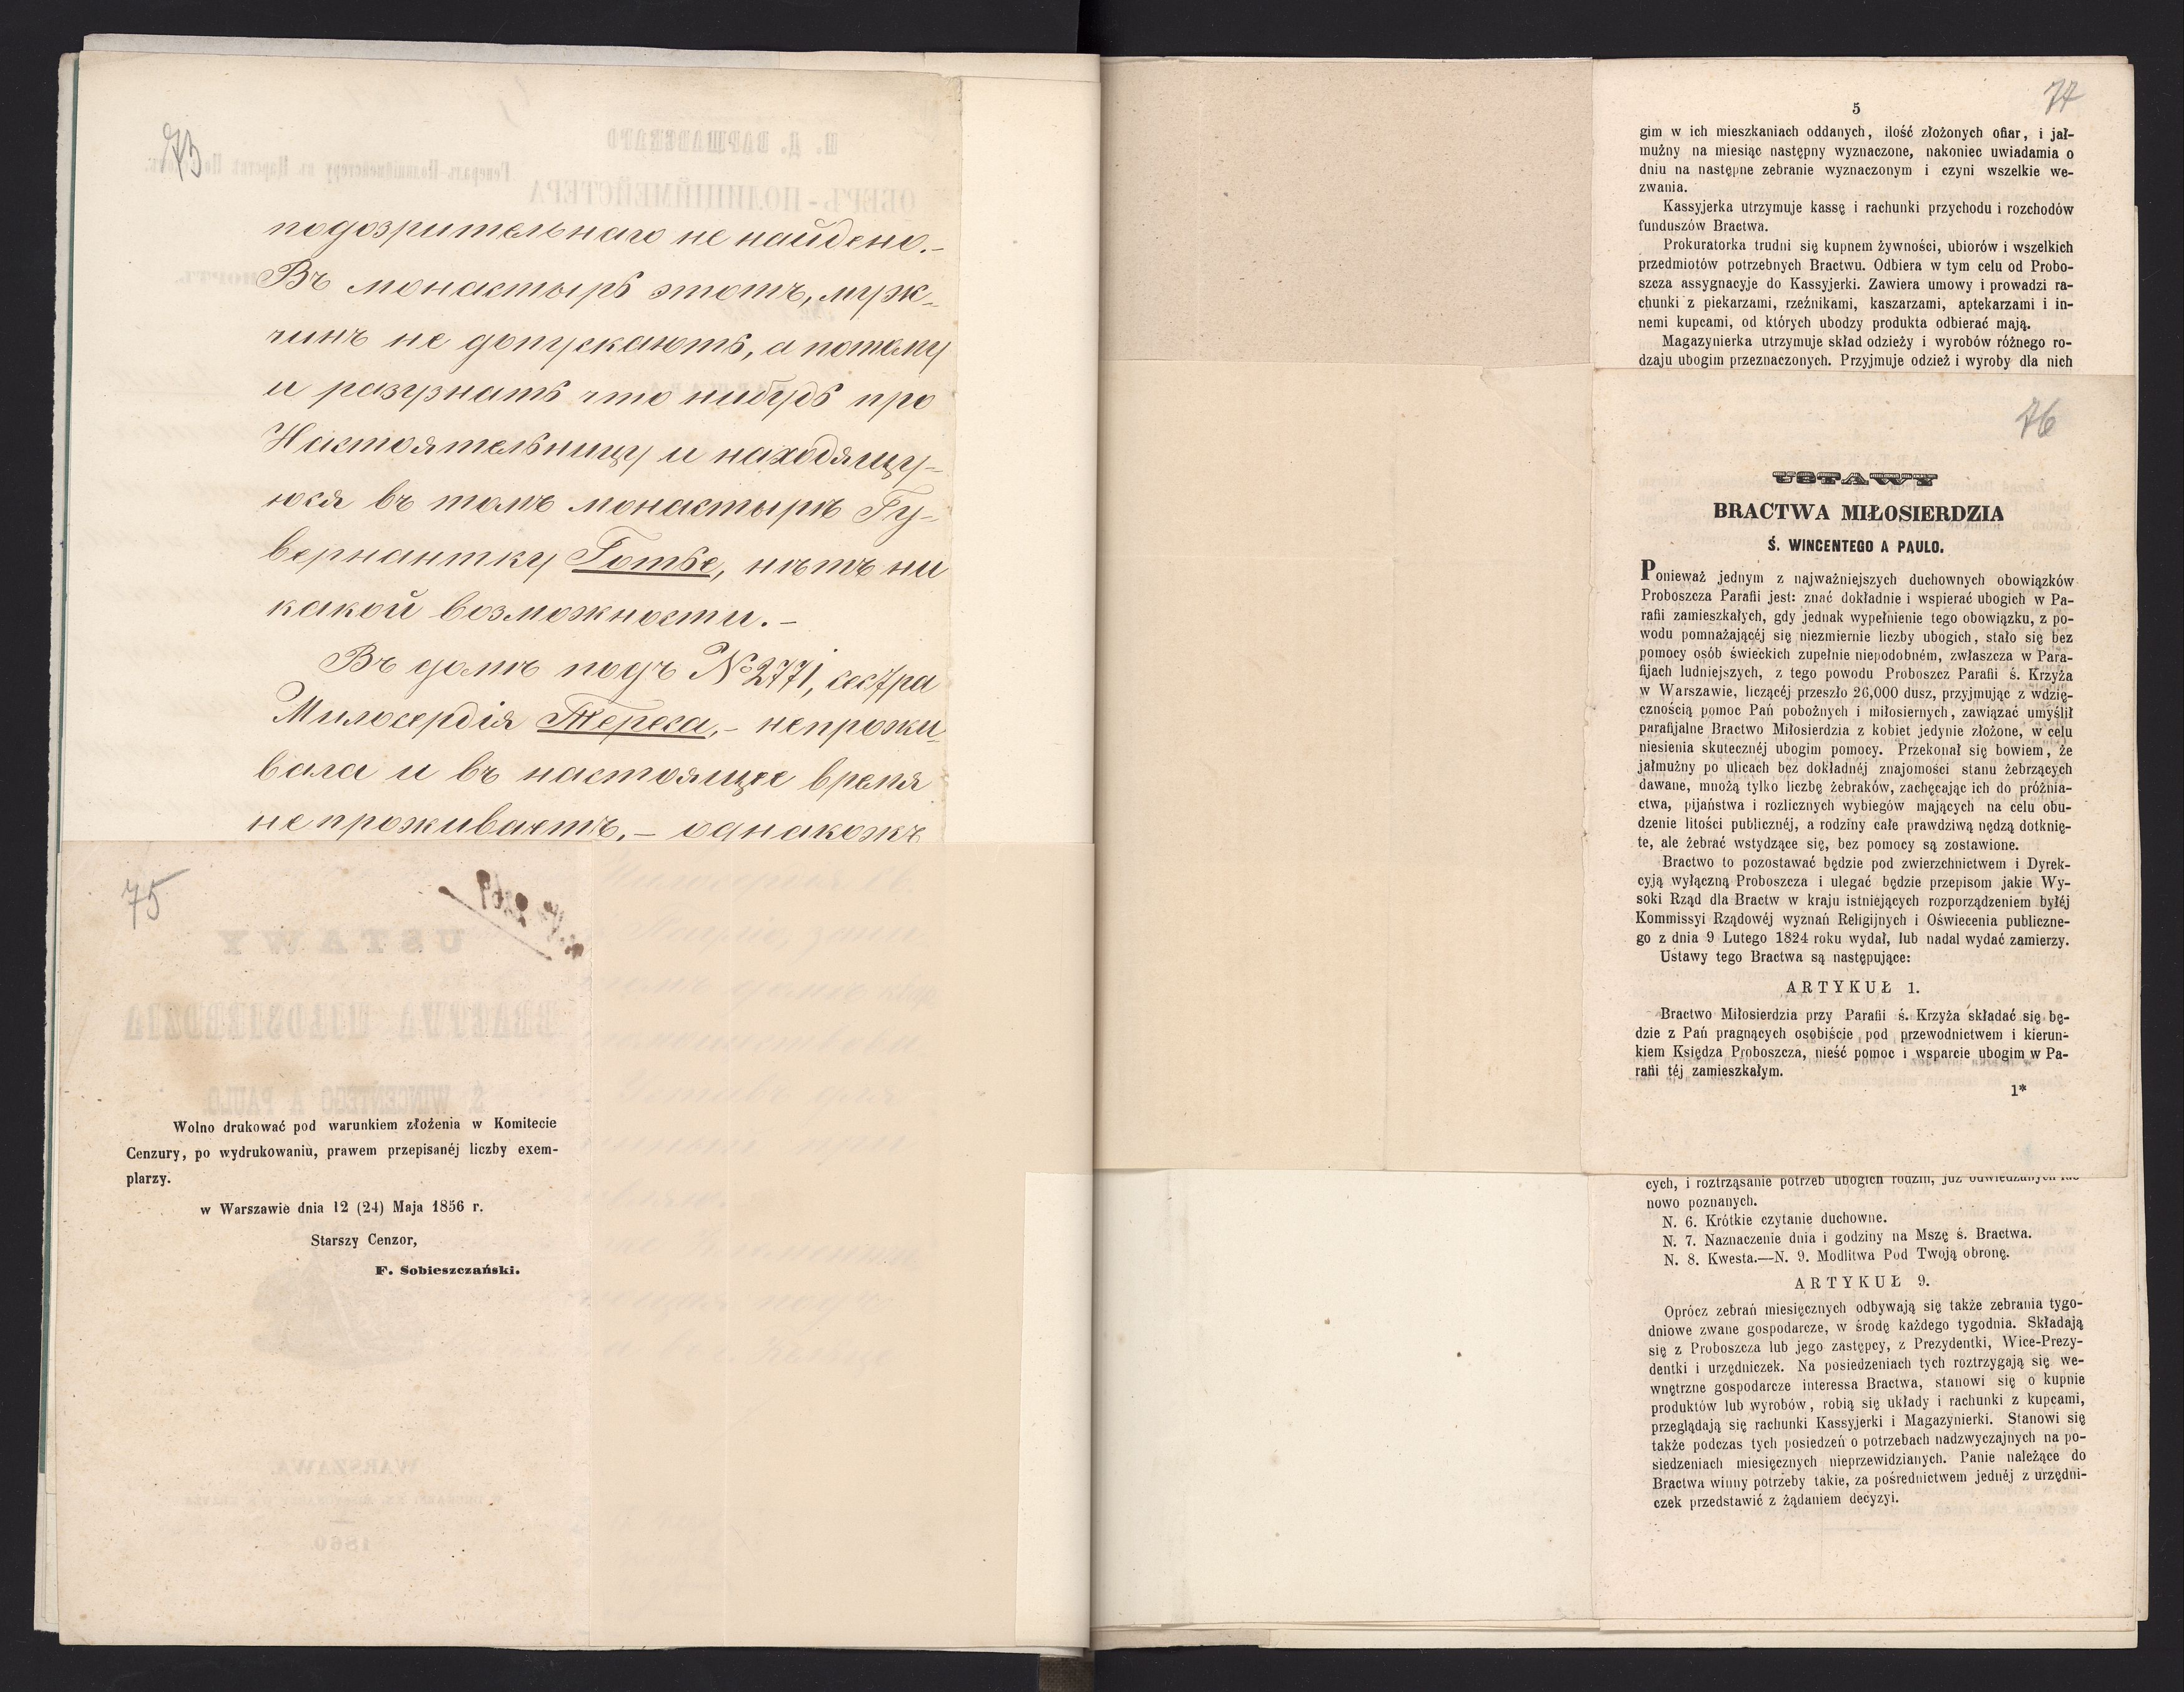 73
подозрительнаго не найдено.-
Въ монастырь этотъ, муж-
чинъ не допускаютъ, а потому
и разузнать что нибудь про
Настоятельницу и находящу-
юся въ томъ монастырѣ Гу-
вернантку Готье, нѣтъ ни
какой возможности.-
Въ домѣ подъ №2771, сестра
Милосердія Тереса,- непрожи-
вала и въ настоящее время
непроживаетъ,- однакожъ
75
Wolno drukować pod warunkiem złożenia w Komitecie
Cenzury, po wydrukowaniu, prawem przepisanéj liczby exem-
plarzy.
w Warszawie dnia 12 (24) Maja 1856 r.
Starszy Cenzor,
F. Sobieszczański.
77
5
gim w ich mieszkaniach oddanych, ilość złożonych ofiar, i jał-
mużny na miesiąc następny wyznaczone, nakoniec uwiadamia o
dniu na następne zebranie wyznaczonym i czyni wszelkie we-
zwania.
Kassyjerka utrzymuje kassę i rachunki przychodu i rozchodów
funduszów Bractwa.
Prokuratorka trudni się kupnem żywności, ubiorów i wszelkich
przedmiotów potrzebnych Bractwu. Odbiera w tym celu od Probo-
szcza assygnacyje do Kassyjerki. Zawiera umowy i prowadzi ra-
chunki z piekarzami, rzeźnikami, kaszarzami, aptekarzami i in-
nemi kupcami, od których ubodzy produkta odbierać mają.
Magazynierka utrzymuje skład odzieży i wyrobów różnego ro-
dzaju ubogim przeznaczonych. Przyjmuje odzież i wyroby dla nich
76
USTAWY
BRACTWA MIŁOSIERDZIA
Ś. WINCENTEGO A PAULO.
Ponieważ jednym z najważniejszych duchownych obowiązków
Proboszcza Parafii jest: znać dokładnie i wspierać ubogich w Pa-
rafii zamieszkałych, gdy jednak wypełnienie tego obowiązku, z po-
wodu pomnażającéj się niezmiernie liczby ubogich, stało się bez
pomocy osób świeckich zupełnie niepodobném, zwłaszcza w Para-
fijach ludniejszych, z tego powodu Proboszcz Parafii ś. Krzyża
w Warszawie, liczącéj przeszło 26,000 dusz, przyjmując z wdzię-
cznością pomoc Pań pobożnych i miłosiernych, zawiązać umyślił
parafijalne Bractwo Miłosierdzia z kobiet jedynie złożone, w celu
niesienia skutecznéj ubogim pomocy. Przekonał się bowiem, że
jałmużny po ulicach bez dokładnéj znajomości stanu żebrzących
dawane, mnożą tylko liczbę żebraków, zachęcając ich do próżnia-
ctwa, pijaństwa i rozlicznych wybiegów mających na celu obu-
dzenie litości publicznéj, a rodziny całe prawdziwą nędzą dotknię-
te, ale żebrać wstydzące się, bez pomocy są zostawione.
Bractwo to pozostawać będzie pod zwierzchnictwem i Dyrek-
cyją wyłączną Proboszcza i ulegać będzie przepisom jakie Wy-
soki Rząd dla Bractw w kraju istniejących rozporządzeniem byłéj
Kommissyi Rządowéj wyznań Religijnych i Oświecenia publiczne-
go z dnia 9 Lutego 1824 roku wydał, lub nadal wydać zamierzy.
Ustawy tego Bractwa są następujące:
ARTYKUŁ 1.
Bractwo Miłosierdzia przy Parafii ś. Krzyża składać się bę-
dzie z Pań pragnących osobiście pod przewodnictwem i kierun-
kiem Księdza Proboszcza, nieść pomoc i wsparcie ubogim w Pa-
rafii téj zamieszkałym.
1*
cych, i roztrząsanie potrzeb ubogich rodzin, już odwiedzanych lub
nowo poznanych.
N. 6. Krótkie czytanie duchowne.
N. 7. Naznaczenie dnia i godziny na Mszę ś. Bractwa.
N. 8. Kwesta.—N. 9. Modlitwa Pod Twoją obronę.
ARTYKUŁ 9.
Oprócz zebrań miesięcznych odbywają się także zebrania tygo-
dniowe zwane gospodarcze, w środę każdego tygodnia. Składają
się z Proboszcza lub jego zastępcy, z Prezydentki, Wice-Prezy-
dentki i urzędniczek. Na posiedzeniach tych roztrzygają się we-
wnętrzne gospodarcze interessa Bractwa, stanowi się o kupnie
produktów lub wyrobów, robią się układy i rachunki z kupcami,
przeglądają się rachunki Kassyjerki i Magazynierki. Stanowi się
także podczas tych posiedzeń o potrzebach nadzwyczajnych na po-
siedzeniach miesięcznych nieprzewidzianych. Panie należące do
Bractwa winny potrzeby takie, za pośrednictwem jednéj z urzędni-
czek przedstawić z żądaniem decyzyi.